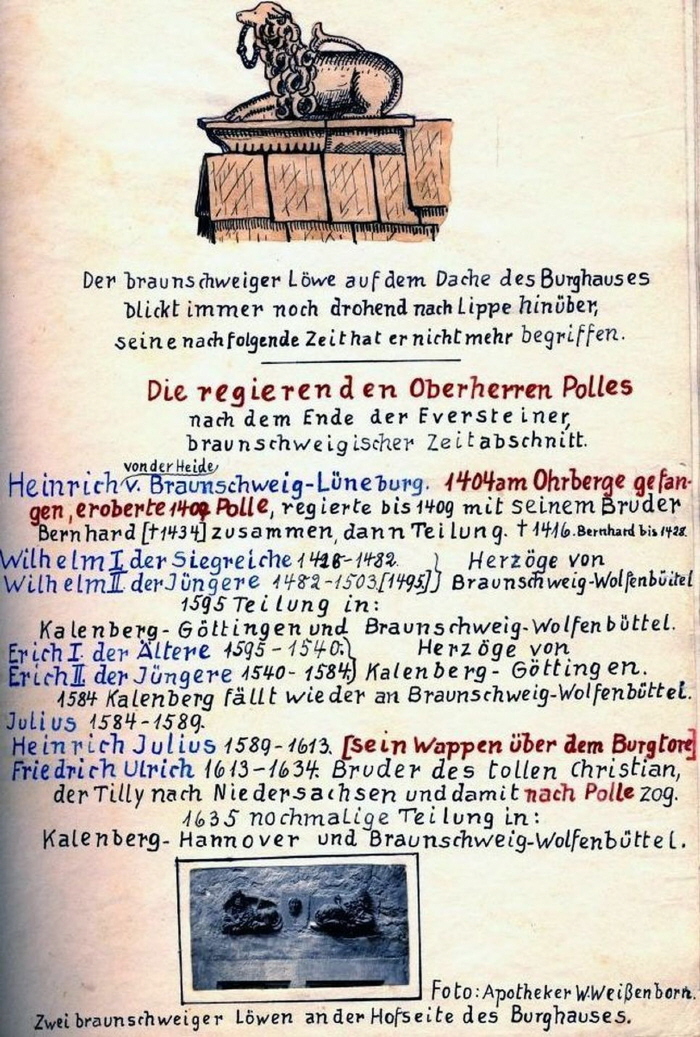 Der braunschweiger Löwe auf dem Dache des Burghauses
blickt immer noch drohend nach Lippe hinüber,
seine nachfolgende Zeit hat er nicht mehr begriffen.
Die regierenden Oberherren Polles
nach dem Ende der Eversteiner,
braunschweigischer Zeitabschnitt.
von der Heide
Heinrich v. Braunschweig-Lüneburg. 1404 am Ohrberge gefan-
gen, eroberte 1409 Polle, regierte bis 1409 mit seinem Bruder
Bernhard [†1434] zusammen, dann Teilung. †1416. Bernhard bis 1428.
Wilhelm I der Siegreiche 1428-1482. } Herzöge von
Wilhelm II der Jüngere 1482-1503.[1495] } Braunschweig-Wolfenbüttel
1595 Teilung in:
Kalenberg-Göttingen und Braunschweig-Wolfenbüttel.
Erich I. der Ältere 1595-1540. } Herzöge von
Erich II der Jüngere 1540-1584. } Kalenberg-Göttingen.
1584 Kalenberg fällt wieder an Braunschweig-Wolfenbüttel.
Julius 1584-1589.
Heinrich Julius 1589-1613. [sein Wappen über dem Burgtore]
Friedrich Ulrich 1613-1634. Bruder des tollen Christian,
der Tilly nach Niedersachsen und damit nach Polle zog.
1635 nochmalige Teilung in:
Kalenberg-Hannover und Braunschweig-Wolfenbüttel.
Foto: Apotheker W. Weißenborn.
Zwei braunschweiger Löwen an der Hofseite des Burghauses.